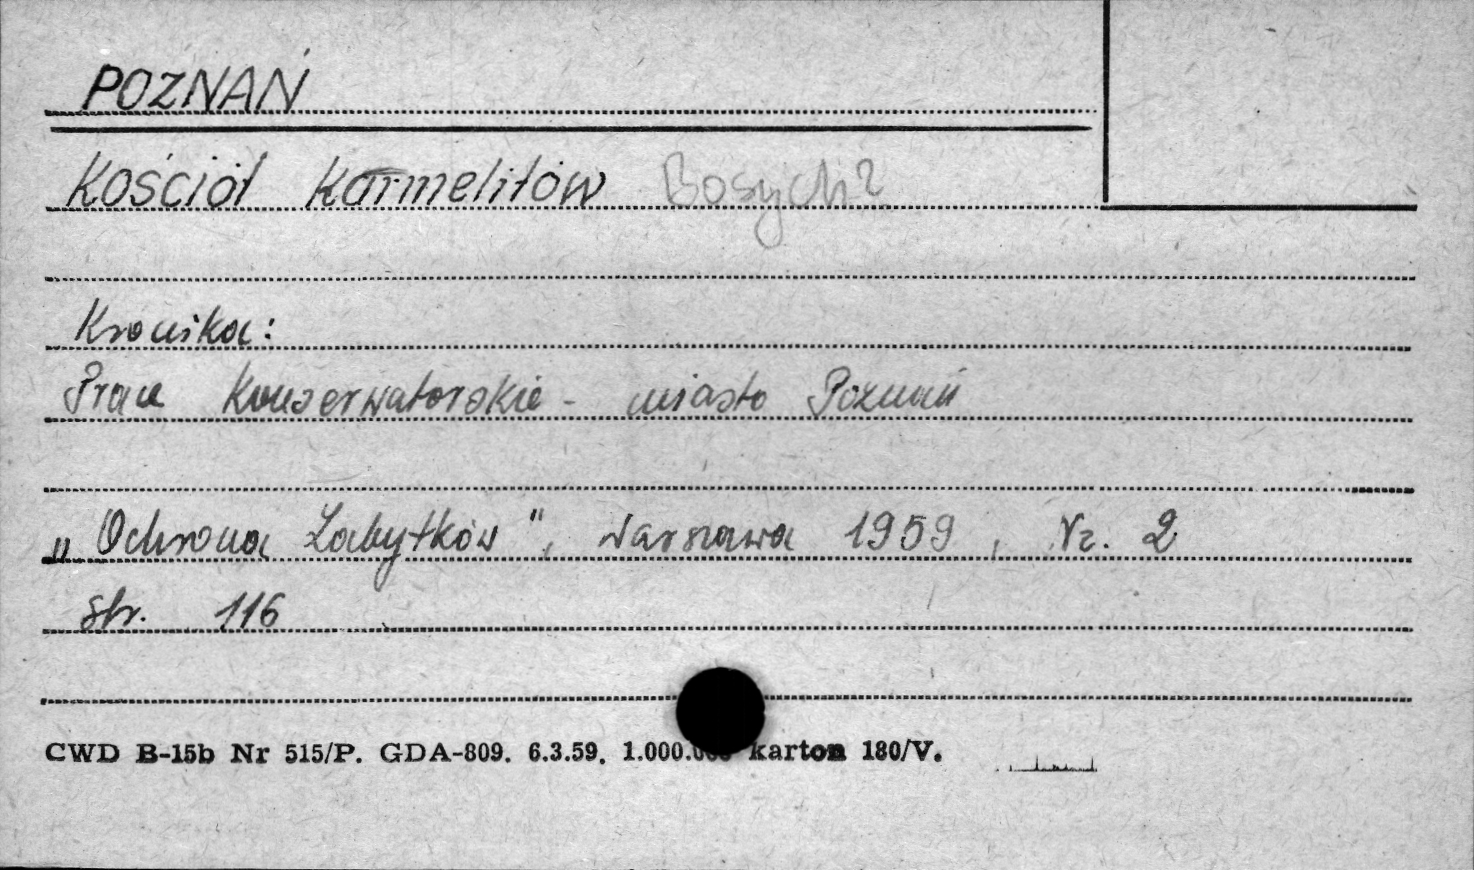 POZNAŃ
Kościół Karmelitów Bosych?
Kronika:
Prace Konserwatorskie - miasto Poznań
„Ochrona Zabytków", Warszawa 1959, Nr. 2
str. 116
CWD B-15b Nr 515/P. GDA-809. 6.3.59. 1.000.000 karton 180/V.